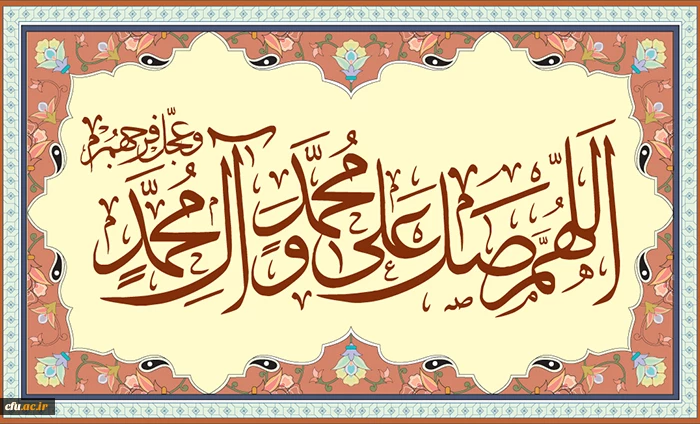 اَللّهُمَّ صَلِّ عَلی مُحَمَّدٍ وَ آلِ مُحَمَّدٍ
وعجّل فرجهم
cfu.ac.ir